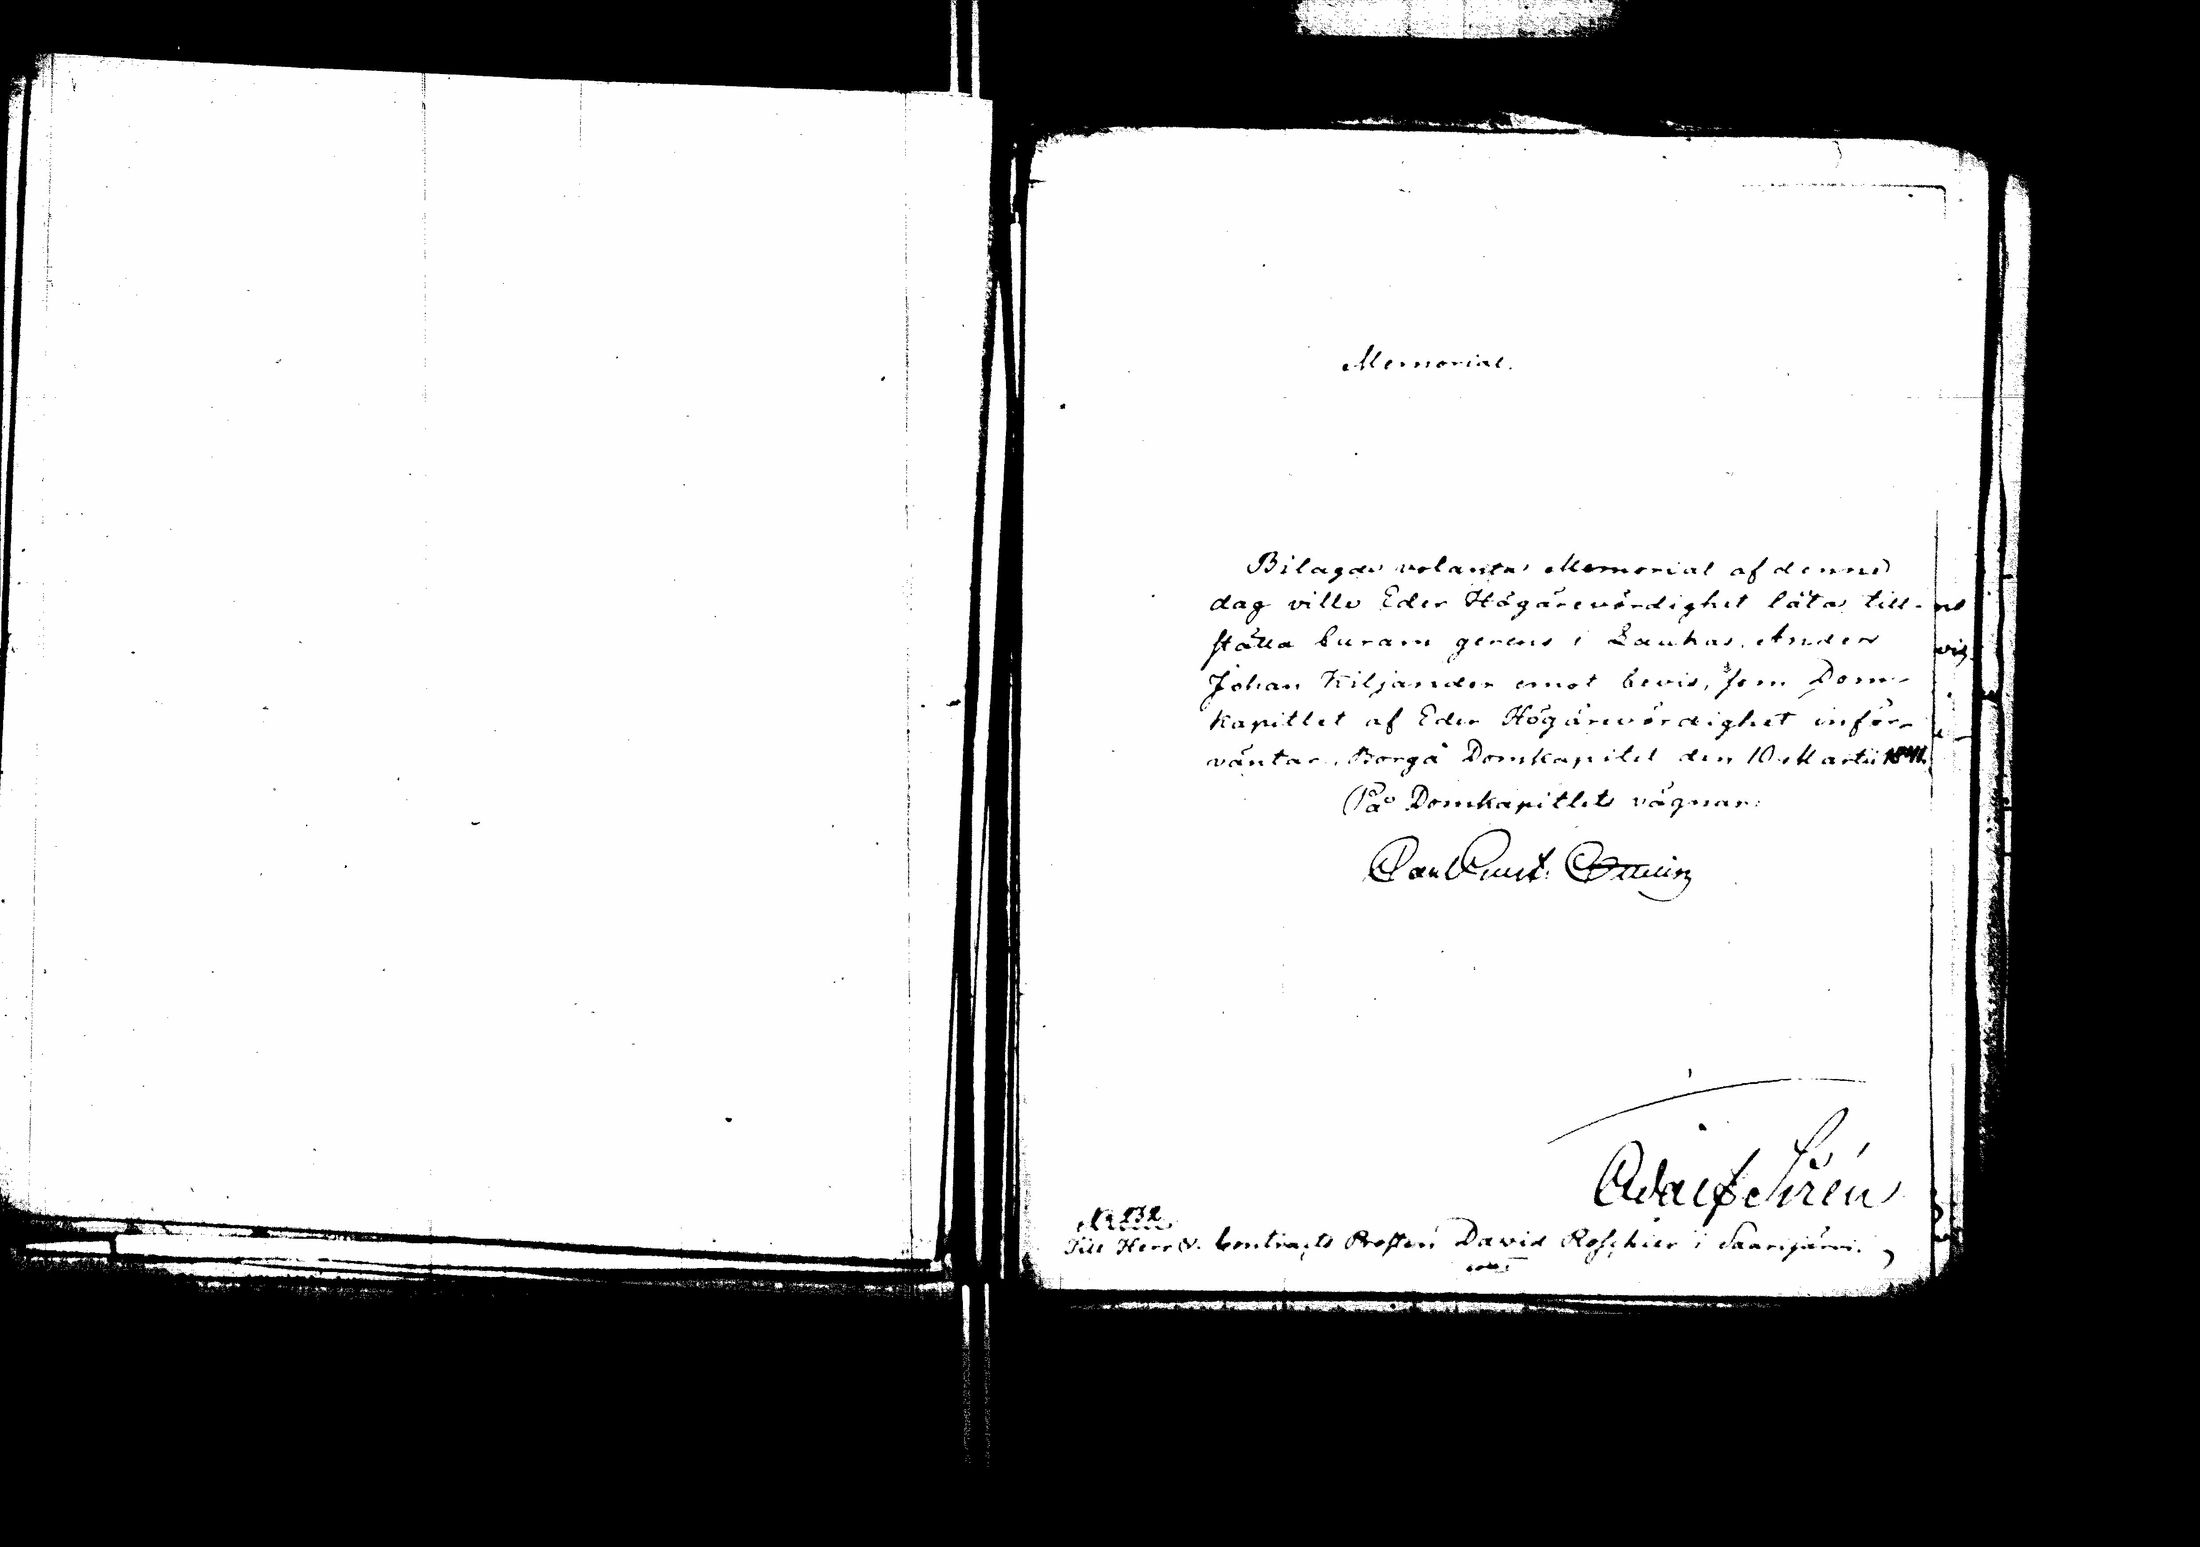 Memorial.
Bilagde volanta Memorial af denne
dag ville Eder Högärevördighet låta till-
ställa Curam gerens i Laukas, Anders
Johan Kiljander emot bevis, som Dom-
kapitlet af Eder Högärevördighet inför-
väntar. Borgå Domkapitel den 10 Martii 1841.
På Domkapitlets vägnar:
Adolf Sirén
No 232
Till Herr Contracts Prosten David Roschier i Saarijärvi.